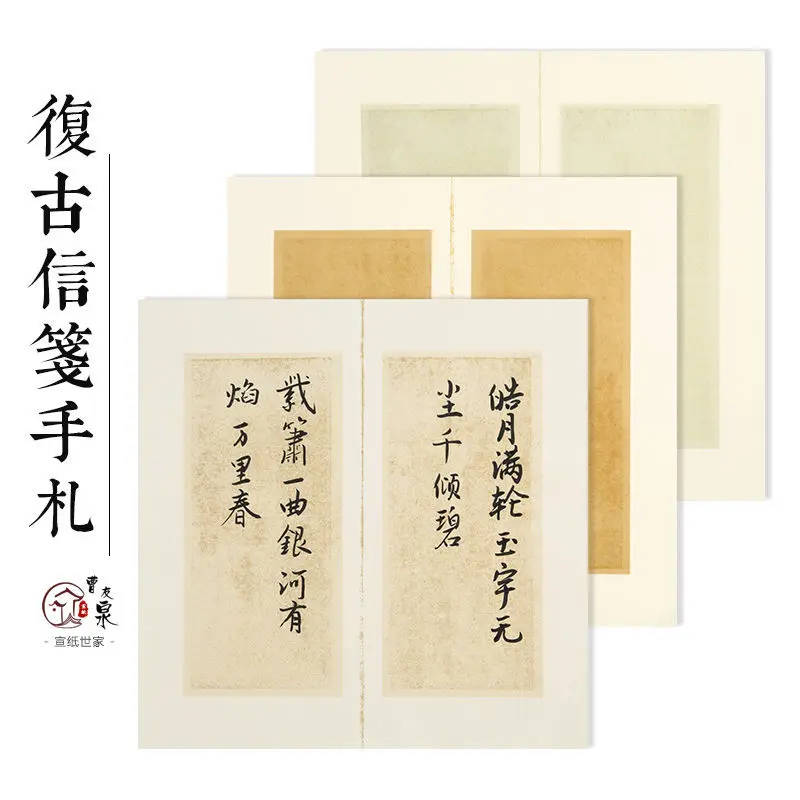 復古信箋手札
皓月满轮玉宇无
尘千倾碧
簫一曲銀河有
焰万里春
曹友泉
- 宣纸世家 -